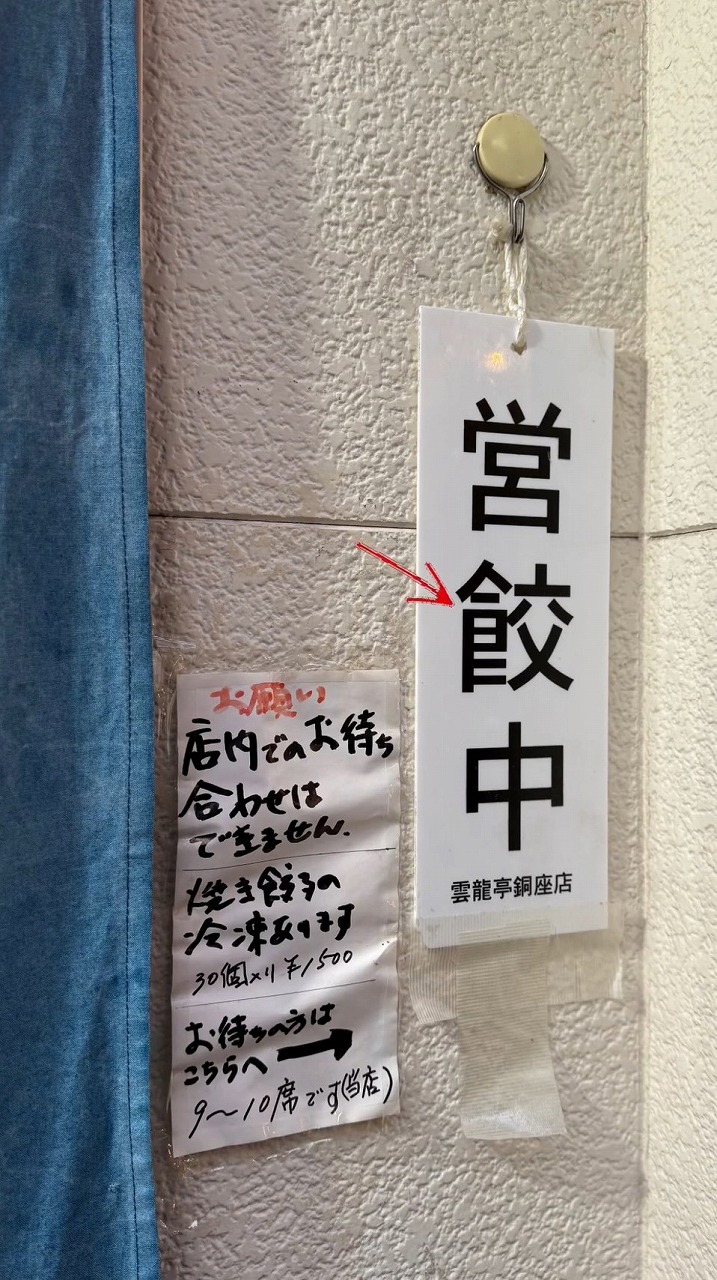 営餃中
雲龍亭銅座店
お願い
店内でのお待ち
合わせは
できません.
焼き餃子の
冷凍あります
30個入り ¥1500
お待ちの方は
こちらへ →
9〜10席です(当店)